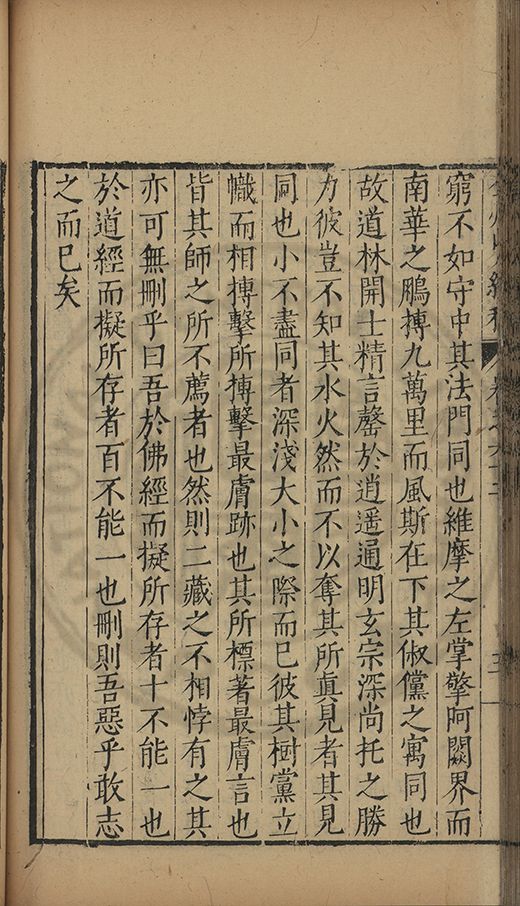 窮不如守中其法門同也維摩之左掌擎阿閦界而
南華之鵬摶九萬里而風斯在下其俶儻之寓同也
故道林開士精言罄於逍遥通明玄宗深尚托之勝
力彼豈不知其水火然而不以奪其所眞見者其見
同也小不盡同者深淺大小之際而已彼其樹黨立
幟而相搏擊所搏擊最膚跡也其所標著最膚言也
皆其師之所不薦者也然則二藏之不相悖有之其
亦可無刪乎曰吾於佛經而擬所存者十不能一也
於道經而擬所存者百不能一也刪則吾惡乎敢志
之而已矣